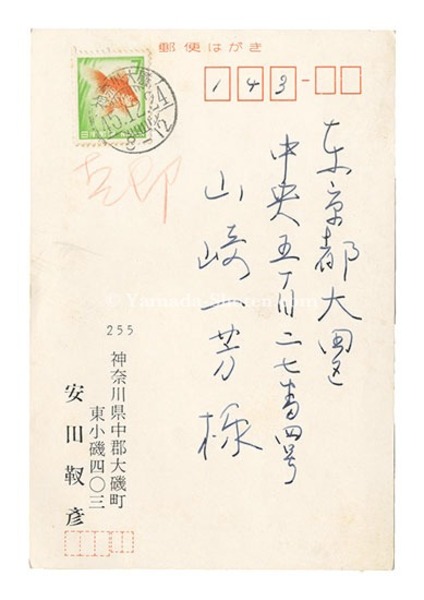 郵便はがき
143-
東京都大田区
中央五丁目二七番四号
山崎一芳様
7
日本郵便
255
神奈川県中郡大磯町
東小磯四〇三
安田靫彦
© Yamada-Shoten.com